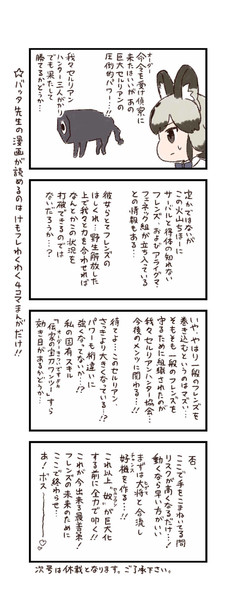 命令を受け偵察に
来たはいいがあの
巨大セルリアンの
圧倒的パワー…!!
我々セルリアン
ハンター三人がかり
でも果たして
勝てるかどうか…
定かではないが
この火山ちほーに
サーバルと得体の知れない
フレンズ、およびアライグマ、
フェネック組が立ち入っている
との情報もある…
彼女らとてフレンズの
はしくれ…野生解放した
上で我々と力を合わせれば
なんとかこの状況を
打破できるのでは
ないだろうか…?
いや、やはり一般のフレンズを
巻き込むというのはマズい…
そもそも一般のフレンズを
守るために組織されたのが
我々セルリアンハンター協会…
今後のメンツに関わる…!!
待てよ…このセルリアン、
さっきより大きくなっている…!?
パワーも桁違いに
強くなってないか…!?
私の固有スキル
効き目があるかどうか…
否、
ここで手をこまねいてる間
リスクが高くなるだけ…!
動くなら早い方がいい
まずは大将と合流し
好機を作る…!!
これ以上、奴が巨大化
する前に全力で叩く!!
これが今出来る最善策!
フレンズの未来のために
ここで終わらせ…
あ!ボス――――♡
☆バッタ先生の漫画が読めるのはけもフレわくわく4コマまんがだけ!!
次号は休載となります。ご了承下さい。